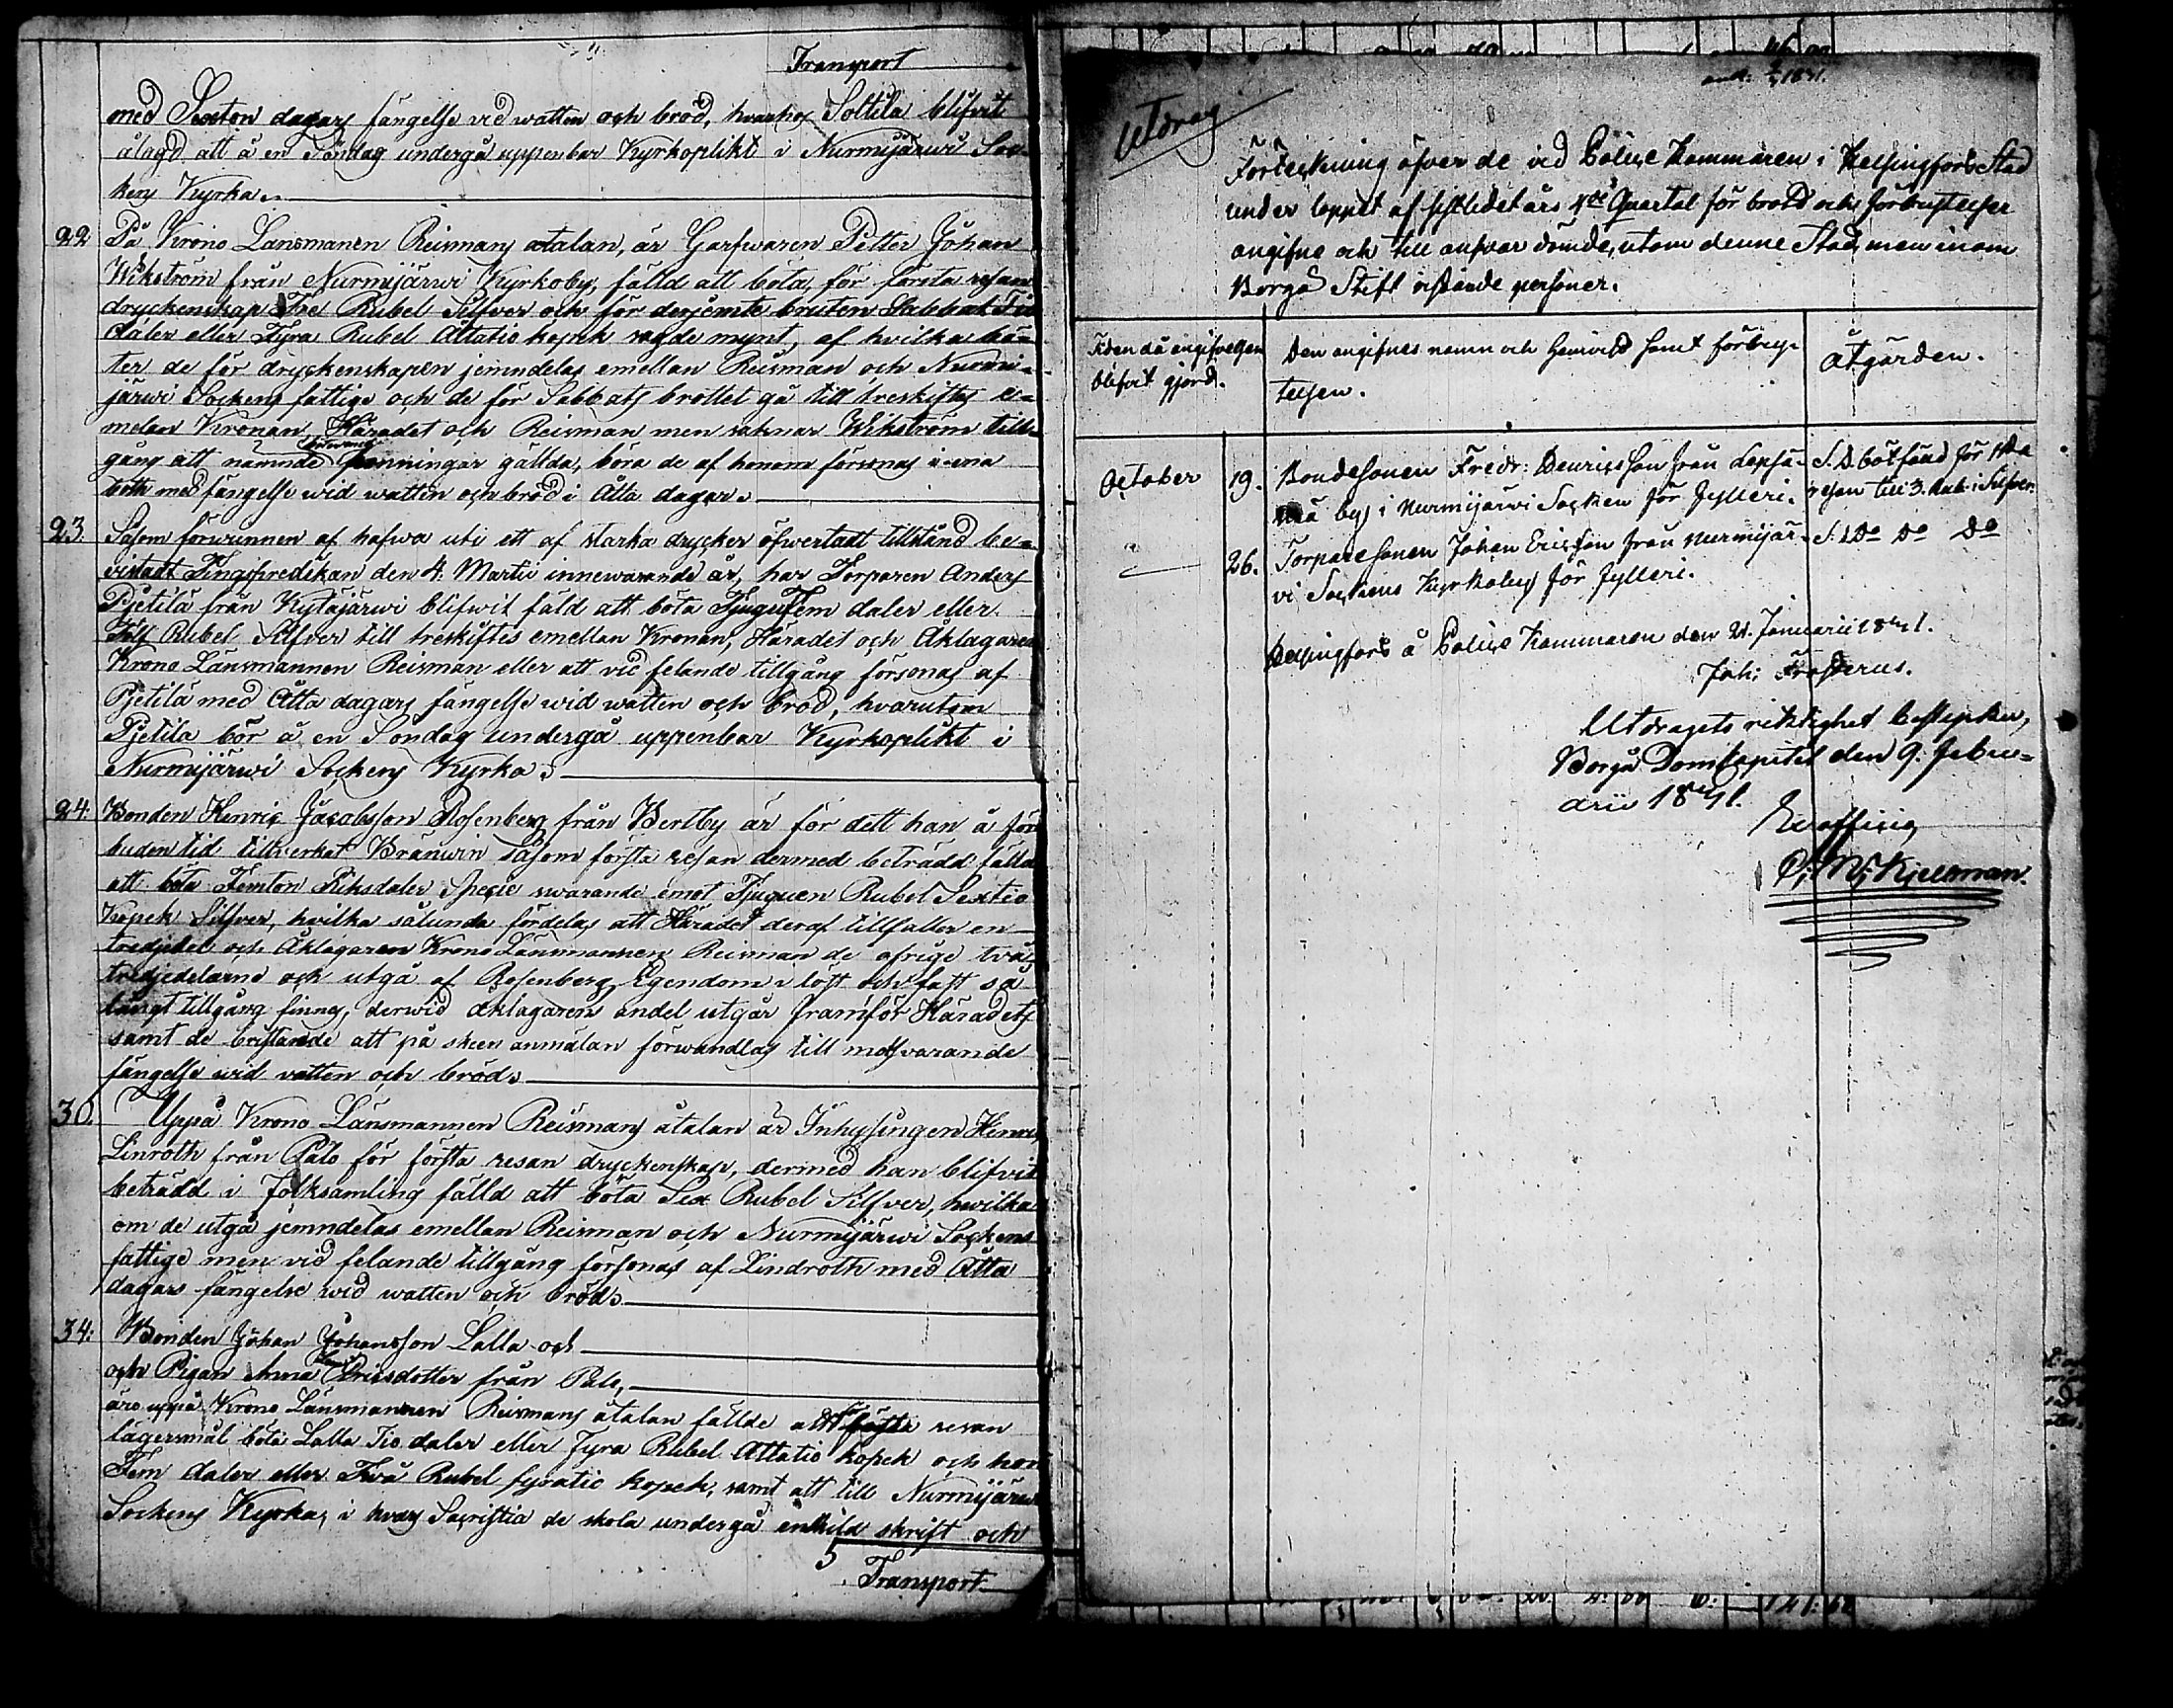 Transport
med Sexton dagars fängelse vid watten och bröd, hwarhos Soltila blifvit
ålagd att å en Söndag undergå uppenbar Kyrkoplikt i Nurmijärwi Soc-
kens Kyrka.
22 På Krono Länsmannen Reismans åtalan, är Garfwaren Petter Johan
Wikström från Nurmijärwi Kyrkoby, fälld att böta, för första resan
dryckenskap Tre Rubel Silfver och för derjemte bruten Sabbat Tio
daler eller Fyra Rubel Åttatio kopek sagde mynt, af hvilka bö-
ter de för dryckenskapen jemndelas emellan Reisman och Nurmi-
järwi Sockens fattige och de för Sabbats brottet gå till treskiftes e-
mellan Kronan, Häradet och Reisman men saknar Wikström till-
gång att nämnde penningar gällda, böra de af honom försonas i ena
bott med fängelse wid watten och bröd i Åtta dagar.
23. Såsom förwunnen af hafwa uti ett af starka drycker öfwerladt tillstånd be-
vistadt Tingspredikan den 4. Martii innewarande år, har Torparen Anders
Pjetilä från Kytäjärwi blifwit fäld att böta Tjugufem daler eller
Tolf Rubel Silfver till treskiftes emellan Kronan, Häradet och Åklagaren
Krono Länsmannen Reisman eller att vid felande tillgång försonas af
Pjetilä med Åtta dagars fängelse wid watten och bröd, hvarutom
Pjetila bör å en Söndag undergå uppenbar Kyrkoplikt i
Nurmijärwi Sockens Kyrka.
24: Bonden Henric Jacobsson Rosenberg från Bertby är för dett han å för-
buden tid tillverkat Bränwin såsom första resan dermed beträdd fälld
att böta Femton Riksdaler Specie swarande emot Tjuguen Rubel Sextio
Kopek Silfver, hvilka sålunda fördelas att Häradet deraf tillfaller en
tredjedel och Åklagaren Krono Länsmannen Reisman de öfrige två
tredjedelarne och utgå af Rosenbergs Egendom i löst och fast så
långt tillgång finnes, derwid åklagarens andel utgår framför Häradets
samt de bristande att på skeen anmälan förwandlas till motsvarande
fängelse wid vatten och bröd.
30. Uppå Krono Länsmannen Reismans åtalan är Inhysingen Henric
Linroth från Palo för första resan dryckenskap, dermed han blifvit
beträdd i Folksamling fälld att böta Sex Rubel Silfver, hwilka
om de utgå jemndelas emellan Reisman och Nurmijärwi Sockens
fattige men vid felande tillgång försonas af Lindroth med Åtta
dagars fängelse wid watten och bröd.
34: Bonden Johan Johansson Lalla och
och Pigan Anna Ericsdotter från Palo,
äro uppå Krono Länsmannen Reismans åtalan fällde att för första resan
lägersmål böta Lalla Tio daler eller Fyra Rubel Åttatio kopek och hon
Fem daler eller Två Rubel fyratio kopek, samt att till Nurmijärwi
Sockens Kyrka, i hvars Sacristia de skola undergå enskild skrift och
Transport
Utdrag
Förteckning öfver de vid Police Kammaren i Helsingfors Stad
under loppet af sistledet års 4de Quartal för brott och förbrytelser
angifne och till ansvar dömde, utom denne Stad, men inom
Borgå Stift boende personer.
Tiden då angifvelsen
blifvit gjord.
Den angifnes namn och hemvist samt förbry-
telsen.
Åtgärden.
October 19. Bondesonen Fredr: Henricsson från Lepsä-
mä by i Nurmijärvi Socken för fylleri.
S. D. bötfäld för 1sta
resan till 3. Rub: i Silfver.
26. Torparesonen Johan Ericsson från Nurmijär-
vi Sockens Kyrkoby för fylleri.
S. D. Do Do
Helsingfors å Police Kammaren den 21. Januarii 1841.
Joh: Frosterus.
Utdragets riktighet bestyrker,
Borgå Domkapitel den 9. Febru-
arii 1841.
Ex officio,
Kjellman.